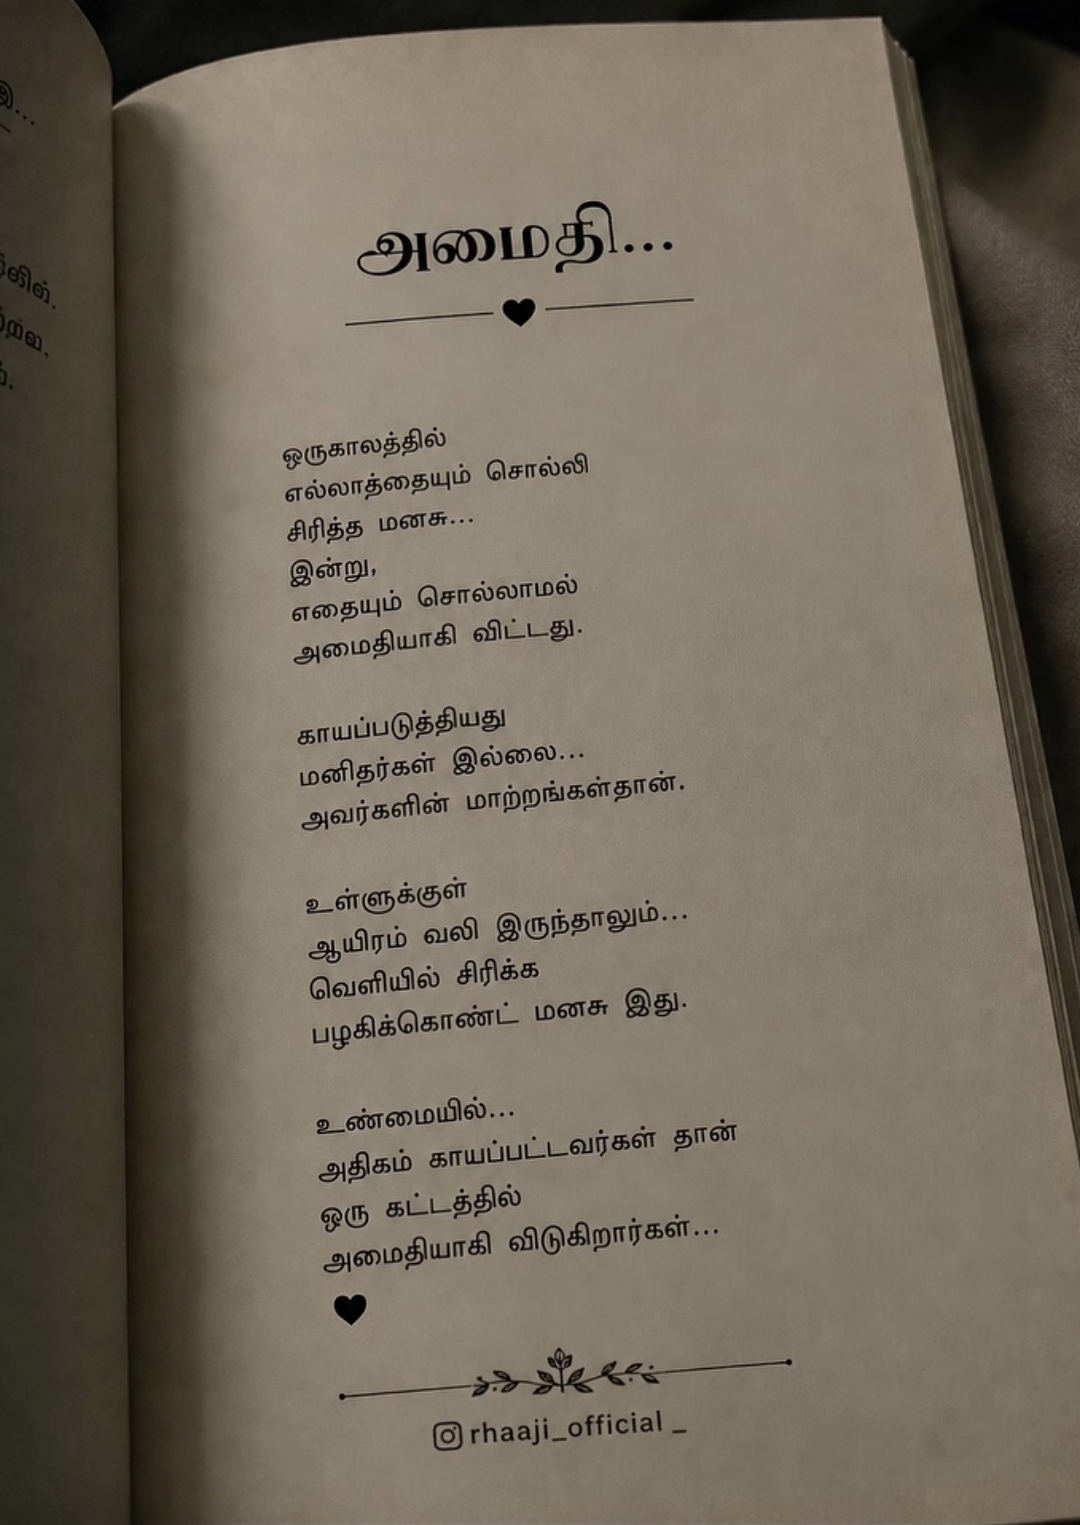 அமைதி...
ஒருகாலத்தில்
எல்லாத்தையும் சொல்லி
சிரித்த மனசு...
இன்று,
எதையும் சொல்லாமல்
அமைதியாகி விட்டது.
காயப்படுத்தியது
மனிதர்கள் இல்லை...
அவர்களின் மாற்றங்கள்தான்.
உள்ளுக்குள்
ஆயிரம் வலி இருந்தாலும்...
வெளியில் சிரிக்க
பழகிக்கொண்ட் மனசு இது.
உண்மையில்...
அதிகம் காயப்பட்டவர்கள் தான்
ஒரு கட்டத்தில்
அமைதியாகி விடுகிறார்கள்...
rhaaji_official _